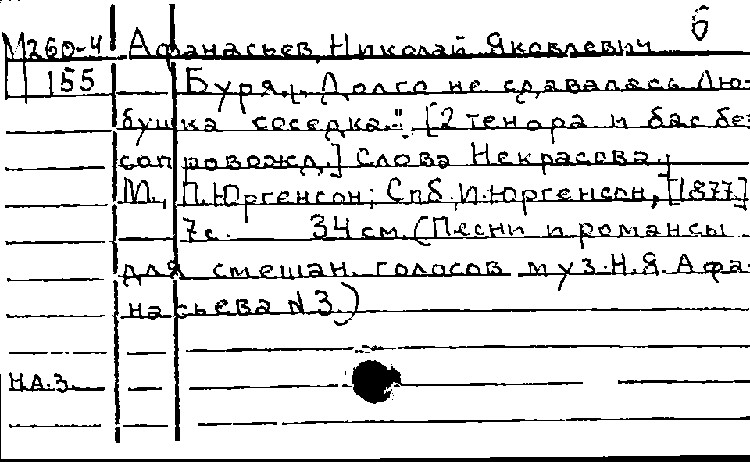 б
М260-4 Афанасьев, Николай Яковлевич
155 Буря. „Долго не сдавалась Лю-
бушка соседка." [2 тенора и бас без
сопровожд.] Слова Некрасова.
М., П.Юргенсон; Спб. И.Юргенсон, [1877]
7с. 34 см. (Песни и романсы
для смешан. голосов муз. Н.Я. Афа-
насьева N 3.)
Н.А.З.